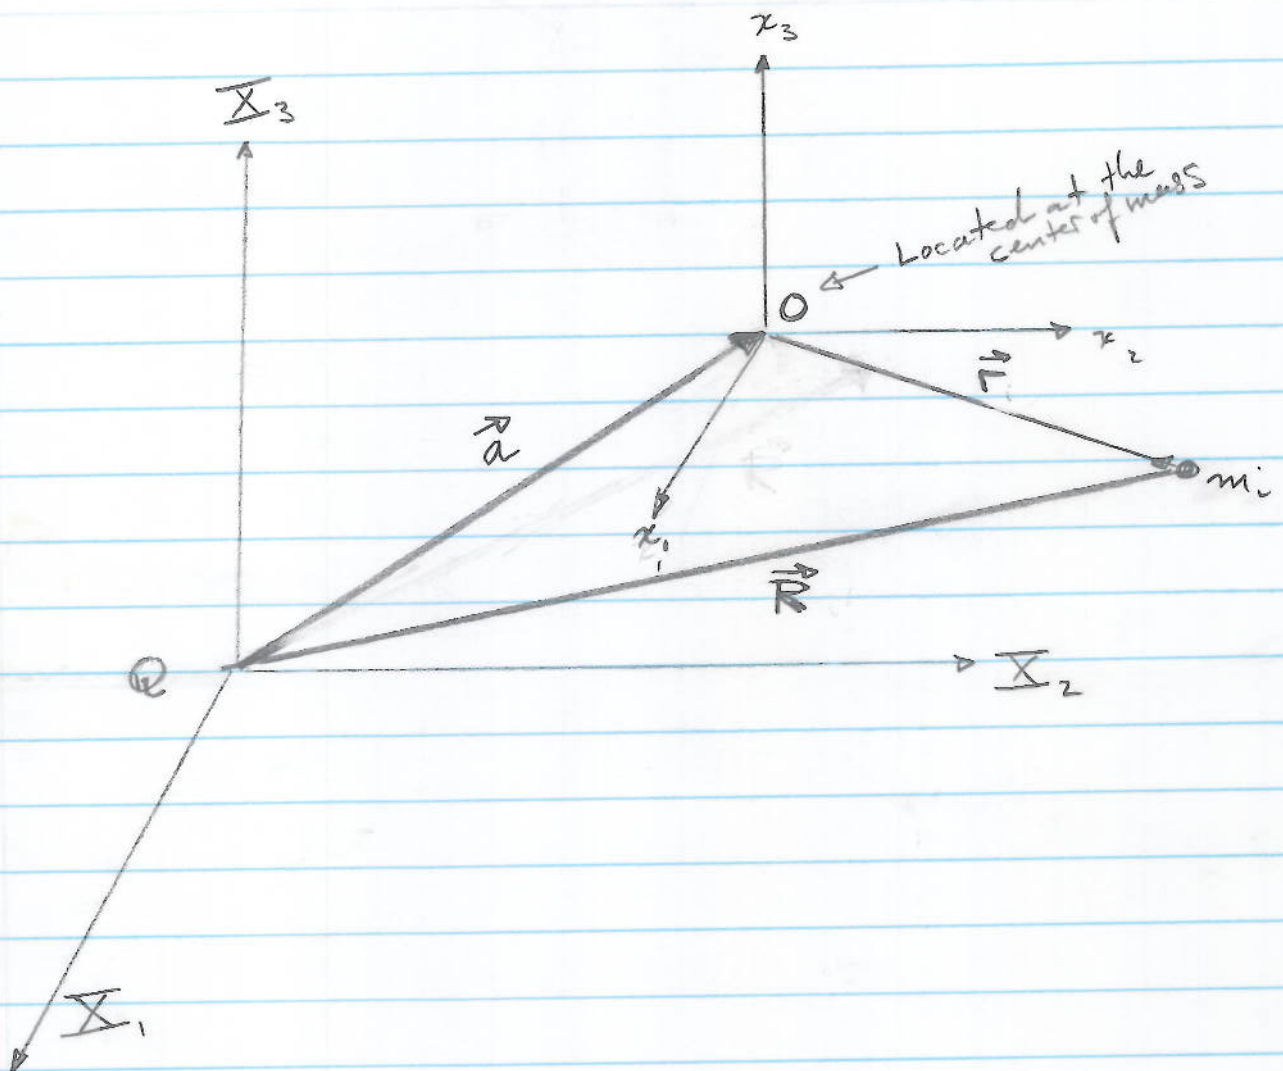 x₃
X₃
Located at the
center of mass
O
x₂
r⃗
a⃗
mᵢ
x₁
R⃗
Q
X₂
X₁